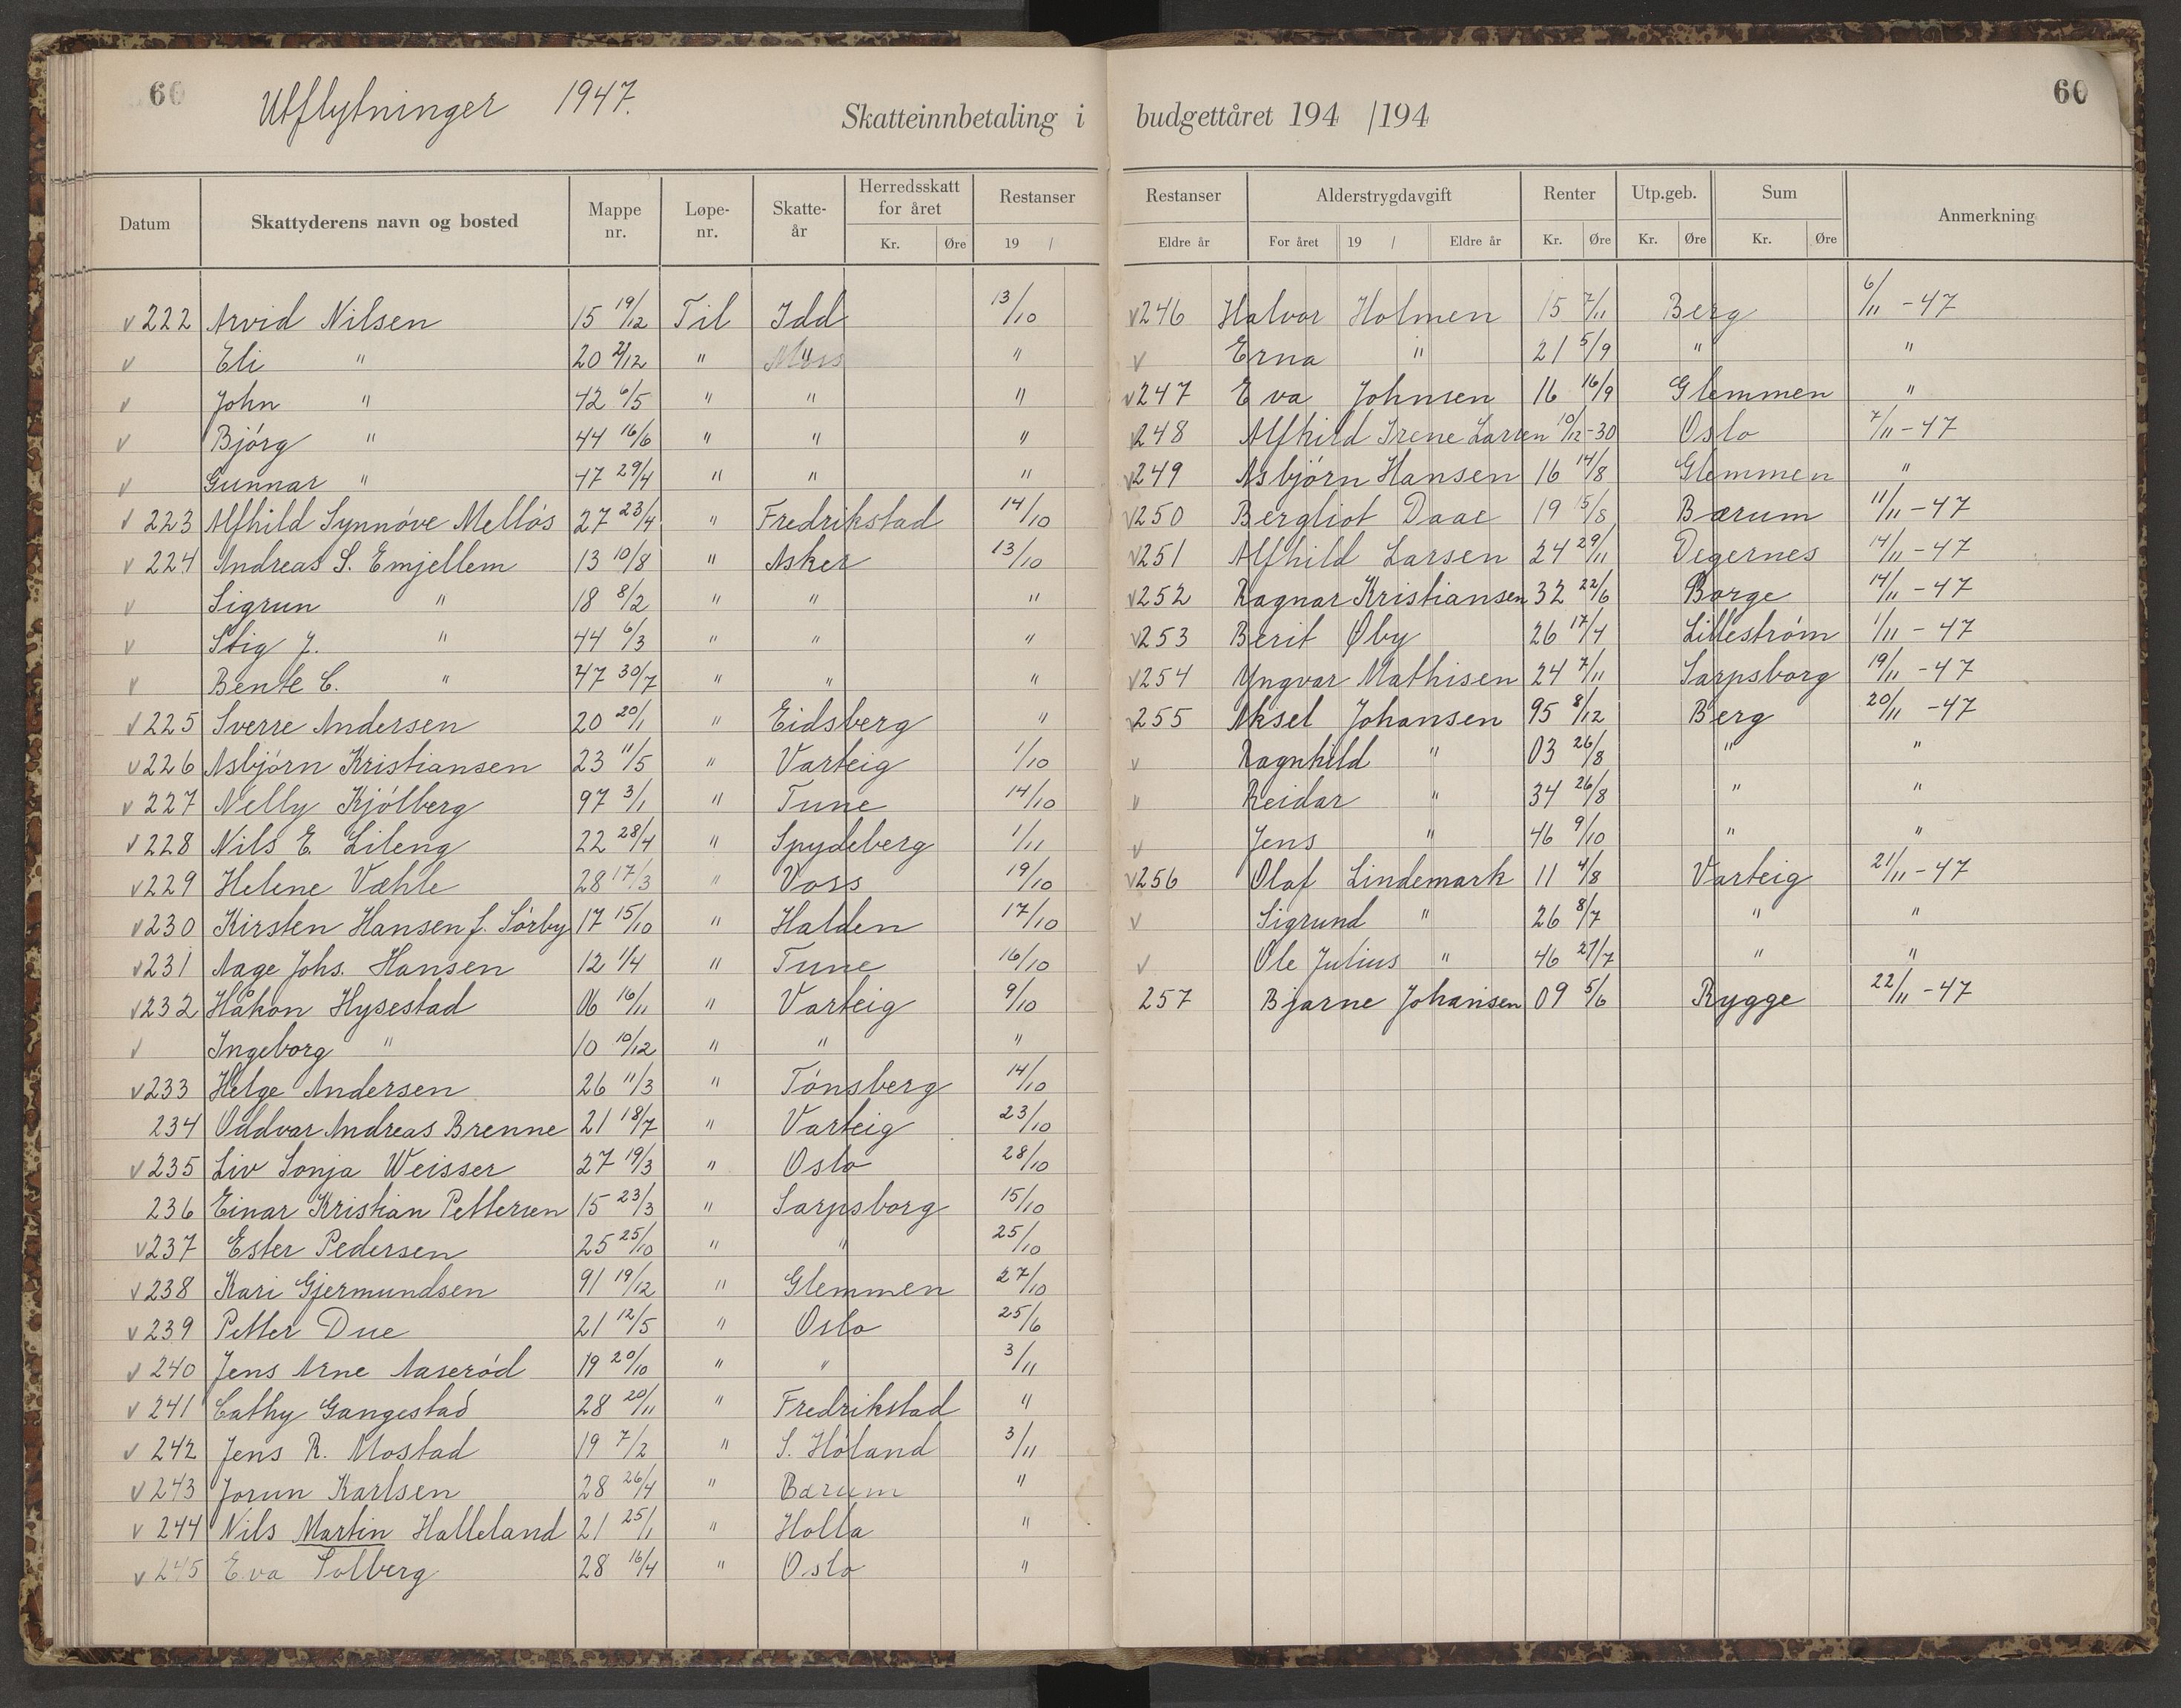 60
Utflytninger 1947.
Skatteinnbetaling i
Datum Skattyderens navn og bosted Mappe nr. Løpe-nr. Skatte-år Herredsskatt for året Kr. Øre Restanser 19 /
v 222 Arvid Nilsen 15 19/12 Til Idd 13/10
v Eli " 20 21/12 " " "
v John " 42 6/5 " " "
v Bjórg " 44 16/6 " " "
v Gunnar " 47 29/4 " " "
v 223 Alfhild Synnóve Mellós 27 23/4 " Fredrikstad 14/10
v 224 Andreas S. Emjellem 13 10/8 " Asker 13/10
v Sigrun " 18 8/2 " " "
v Stig J. " 44 6/3 " " "
v Bente C. " 47 30/7 " " "
v 225 Sverre Andersen 20 20/1 " Eidsberg "
v 226 Asbjórn Kristiansen 23 11/5 " Varteig 1/10
v 227 Nelly Kjólberg 97 3/1 " Tune 14/10
v 228 Nils E. Lileng 22 28/4 " Spydeberg 1/11
v 229 Helene Væhle 28 17/3 " Voss 19/10
v 230 Kirsten Hansen f. Sórby 17 15/10 " Halden 17/10
v 231 Aage Johs. Hansen 12 1/4 " Tune 16/10
v 232 Håkon Hysestad 06 16/11 " Varteig 9/10
v Ingeborg " 10 10/12 " " "
v 233 Helge Andersen 26 11/3 " Tónsberg 14/10
234 Oddvar Andreas Brenne 21 18/7 " Varteig 23/10
v 235 Liv Sonja Weisser 27 19/3 " Oslo 28/10
236 Einar Kristian Pettersen 15 23/3 " Sarpsborg 15/10
v 237 Ester Pedersen 25 25/10 " " 25/10
v 238 Kari Gjermundsen 91 19/12 " Glemmen 27/10
v 239 Petter Due 21 12/5 " Oslo 25/6
v 240 Jens Arne Aaseród 19 20/10 " " 3/11
v 241 Cathy Gangestad 28 20/11 " Fredrikstad "
v 242 Jens R. Mostad 19 7/2 " S. Hóland 3/11
v 243 Jorun Karlsen 28 26/4 " Bærum "
v 244 Nils Martin Halleland 21 25/1 " Holla "
v 245 Eva Solberg 28 16/4 " Oslo "
60
budgettåret 194 /194
Restanser Eldre år Alderstrygdavgift For året 19 / Eldre år Renter Kr. Øre Utp.geb. Kr. Øre Sum Kr. Øre Anmerkning
v 246 Halvor Holmen 15 7/11 Berg 6/11 - 47
v Erna " 21 5/9 " "
v 247 Eva Johnsen 16 16/9 Glemmen "
v 248 Alfhild Irene Larsen 10/12-30 Oslo 7/11 - 47
v 249 Asbjórn Hansen 16 14/8 Glemmen "
v 250 Bergliot Daae 19 15/8 Bærum 11/11 - 47
v 251 Alfhild Larsen 24 29/11 Degernes 14/11 - 47
v 252 Ragnar Kristiansen 32 22/6 Borge 14/11 - 47
v 253 Berit Øby 26 17/4 Lillestróm 1/11 - 47
v 254 Yngvar Mathisen 24 7/11 Sarpsborg 19/11 - 47
v 255 Aksel Johansen 95 8/12 Berg 20/11 - 47
v Ragnhild " 03 26/8 " "
v Reidar " 34 26/8 " "
v Jens " 46 9/10 " "
v 256 Olaf Lindemark 11 4/8 Varteig 21/11 - 47
v Sigrund " 26 8/7 " "
v Ole Julius " 46 27/7 " "
257 Bjarne Johansen 09 5/6 Rygge 22/11 - 47